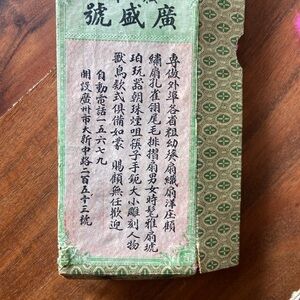 廣盛號
專做外埠各省粗幼葵扇織扇洋庄顧
繡扇孔雀翎尾毛排摺扇男女時髦雅扇琥
珀玩器朝珠煙咀筷子手鈪大小雕刻人物
獸鳥欵式俱備如蒙 賜顧無任歡迎
自動電話一五六七九
開設廣州市大新中路二百五十三號